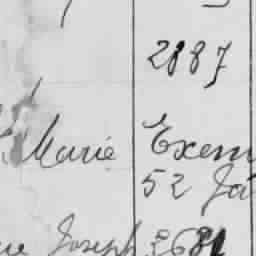 2887
Marie Exem
52 Ja
Joseph 3681